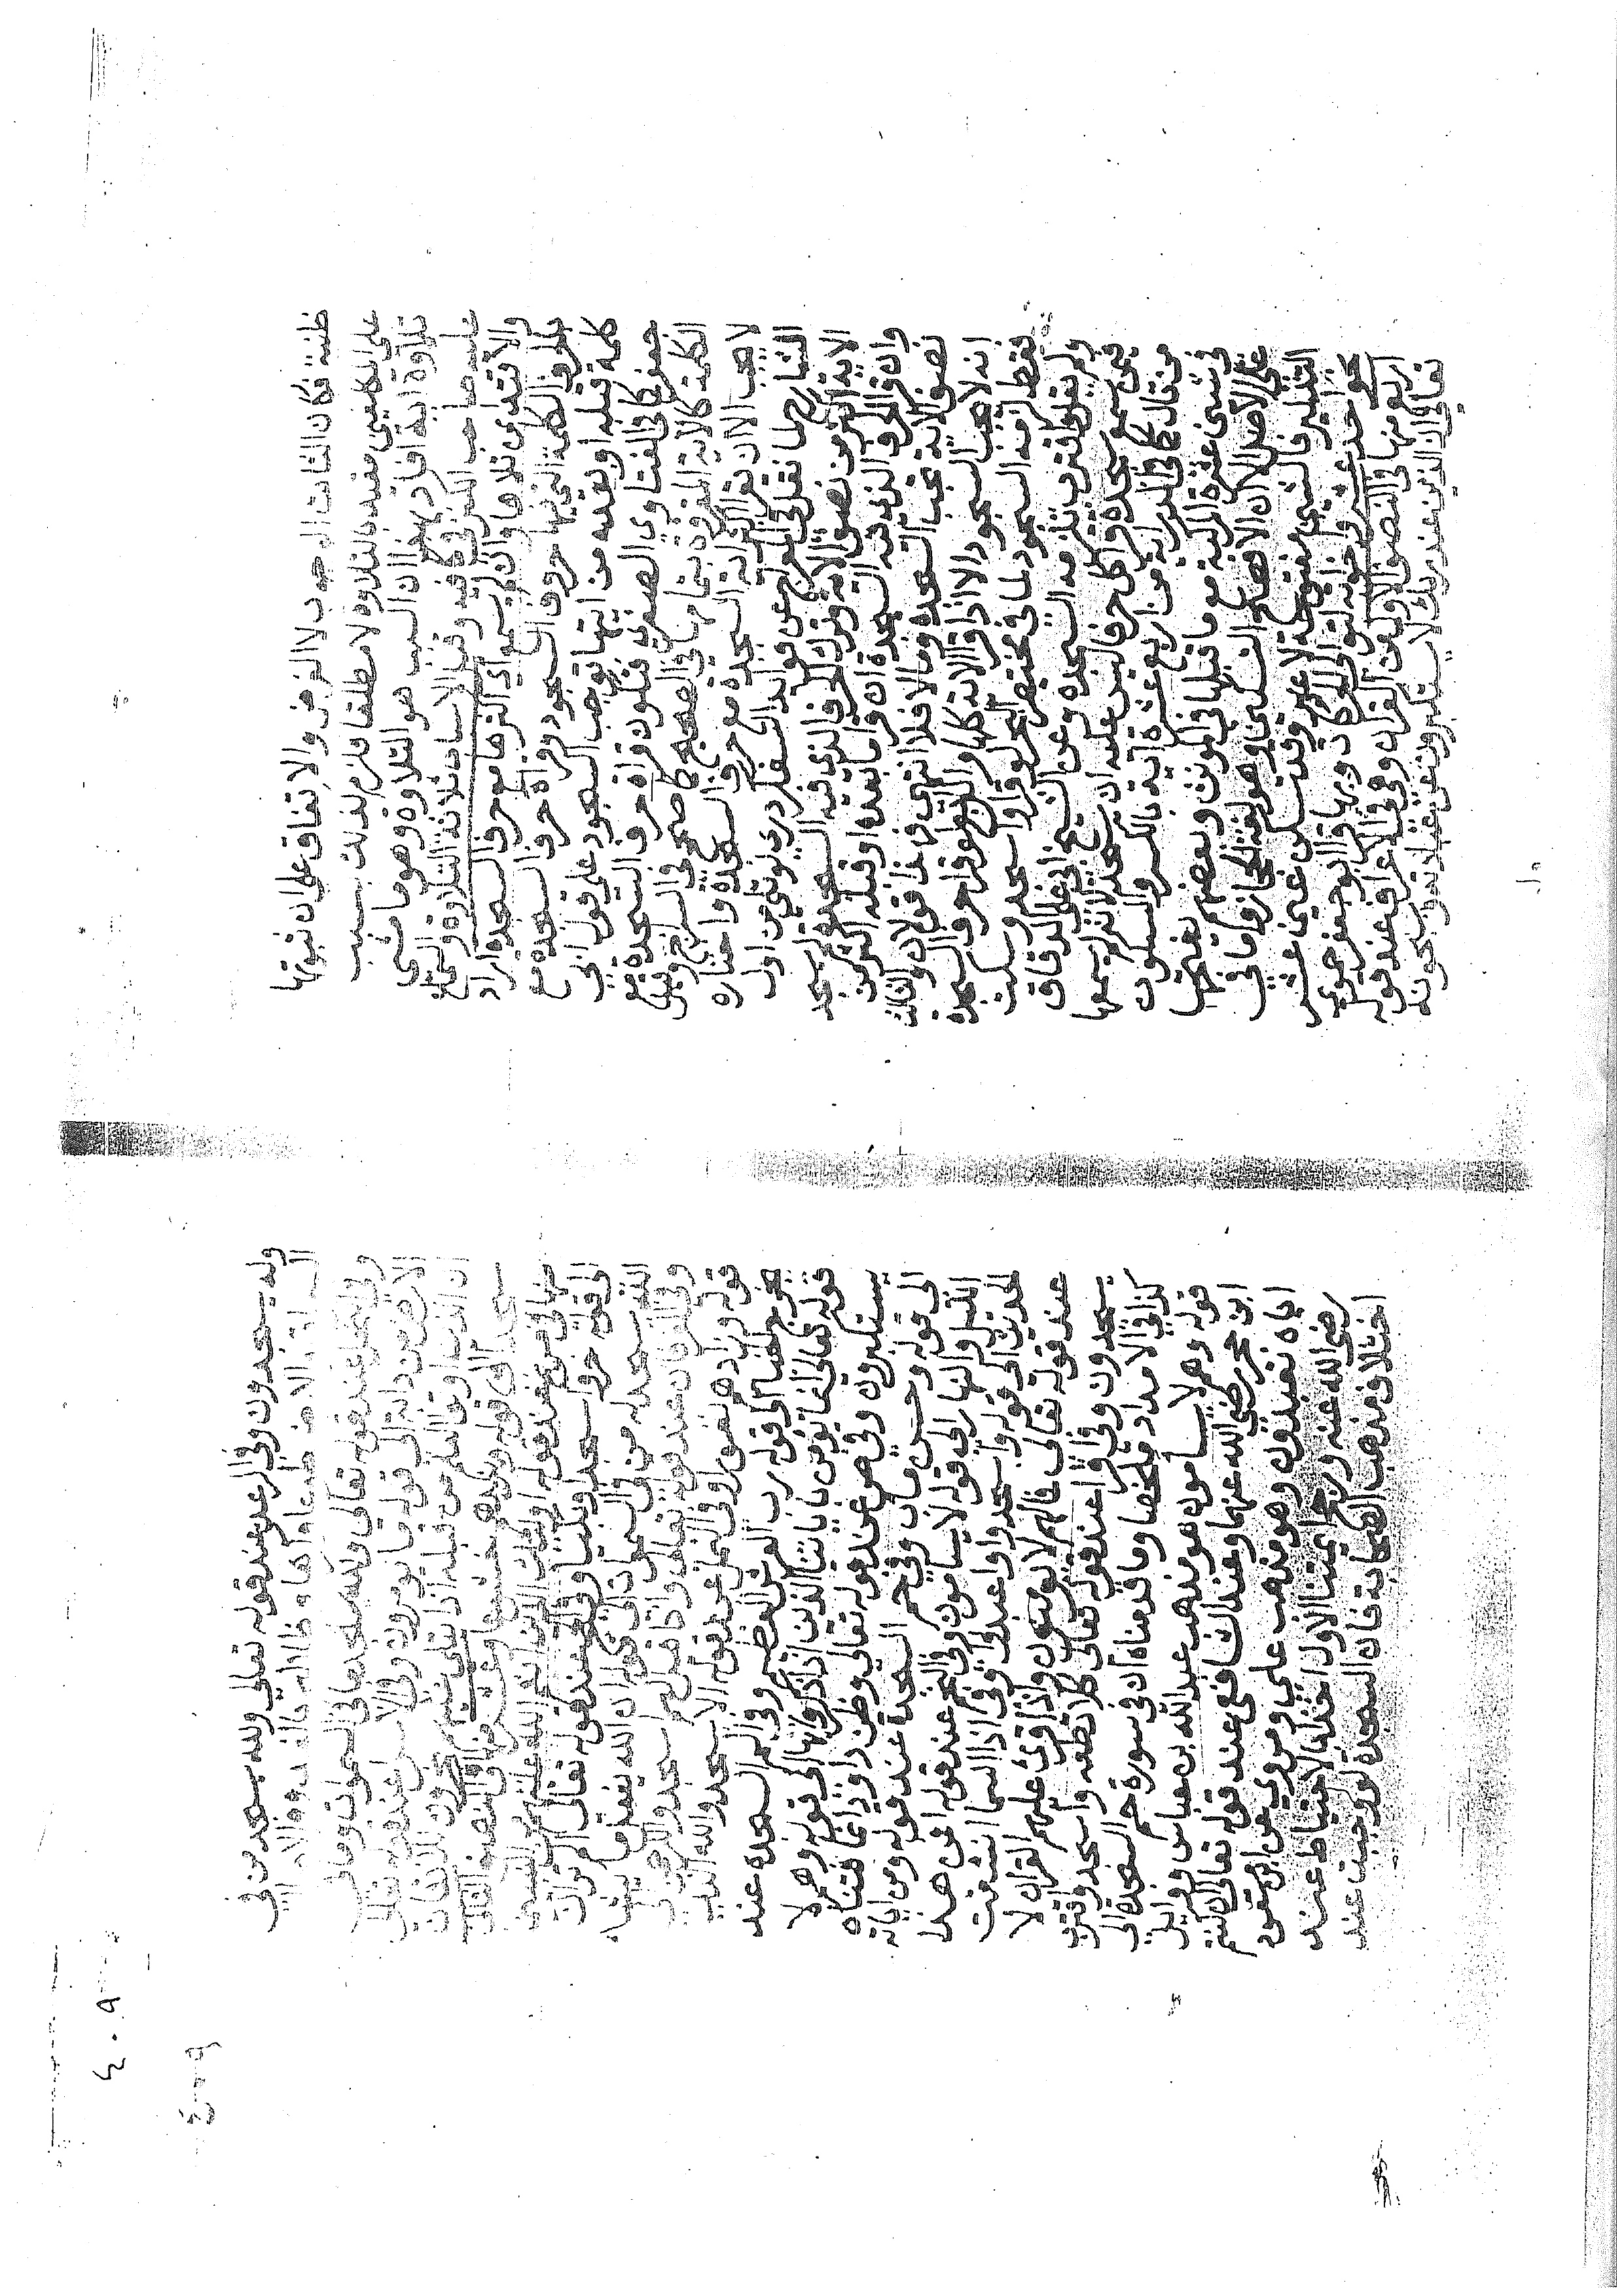 ظنية فكان الثابت الوجوب لا الفرض والاتفاق على ان ثبوتها
على المكلفين مقيد بالتلاوة لا مطلقا فلزم لذلك بسبب
تلاوة اية افاد بهذا ان السبب هو التلاوة وهو ما مشى
عليه صاحب الكنز وفيه وقيل الاسباب ثلاثة التلاوة والسماع
والاقتداء من تلاها وان لم يسمع اي اكثرها مع حرف السجدة اراد
بالحرف الكلمة التي فيها حروف السجود وقراة حرف السجدة مع
كلمة قبله او بعده من ايتها توجب السجود على قول ابي
جعفر كما في الفتاوى الصغرى فتكون قراة حرف السجدة مع
الكلمة كالاية المقروة بتمامها في الصحيح كما صح في السراج وقيل
لا تجب الا ان تقرا اكثر اية السجدة مع حرف السجدة واختاره
الشارح لما نقل في المعراج عن فوائد السفكردري لو تلى من اول
الاية اكثر من نصف الاية وترك الحرف الذي فيه السجدة لم يسجد
وان قرا الحرف الذي فيه السجدة ان قرا ما بعدها او قبله اكثر من
نصف الاية تجب السجدة وما لا فلا انتهى فهذا قولان والثالث
انه لا يجب السجود الا اذا قرا الاية كلها والرابع لو قرا حرف السجدة
فقط لزمه السجود لما في مختصر البحر لو قرا واسجد وسكت
ولم يقل واقترب تلزمه السجدة وعن الشيخ ابي علي الدقاق
فمن سمع سجدة قرا كل حرف ليس عليه ان يسجد لانه لم يسمعها
من قال كما في الدراية من اربع عشرة اية بالكسر والسكون
في شين عشرة المركبة مع ما قبلها في المونث وبعضهم يفتحها
على الاصل الا ان الافصح التسكين وهو لغة الحجاز واما في
التذكير فالشين مفتوحة لا غير وقد تسكن عين عشر
نحو احد عشر واخواته لتوالي الحركات وبها قرا ابو جعفر هي
اربع منها في النصف الاول من القران وهي الاعراف عند قوله
تعالى ان الذين عند ربك لا يستكبرون عن عبادته ويسبحونه
وله يسجدون وفي الرعد عند قوله تعالى ولله يسجد من في
السموات والارض طوعا وكرها وظلالهم بالغدو والاصال
وفي النحل عند قوله تعالى ولله يسجد ما في السموات وما في
الارض من دابة الى قوله ما يومرون وفي الاسراء عند قوله تعالى
ان الذين اوتوا العلم من قبله اذا يتلى عليهم يخرون للاذقان
سجدا الى قوله ويزيدهم خشوعا وعشر منها في النصف الثاني
منها في مريم عند قوله اولئك الذين انعم الله عليهم من النبيين
الى قوله خروا سجدا وبكيا وفي الحج عند قوله تعالى الم تر ان
الله يسجد له من في السموات الى قوله ان الله يفعل ما يشاء
وفي الفرقان عند قوله تعالى واذا قيل لهم اسجدوا للرحمن الى
قوله وزادهم نفورا وفي النمل عند قوله الا يسجدوا لله الذي
يخرج الخبا الى قوله رب العرش العظيم وفي الم السجدة عند
قوله تعالى انما يومن باياتنا الذين اذا ذكروا بها الى قوله وهم لا
يستكبرون وفي ص عند قوله تعالى وظن داود انما فتناه
الى قوله وحسن ماب وفي حم السجدة عند قوله ومن اياته
الليل والنهار الى قوله لا يسامون وفي النجم عند قوله افمن هذا
الحديث الى قوله فاسجدوا لله واعبدوا وفي اذا السما انشقت
عند قوله تعالى فما لهم لا يومنون واذا قرئ عليهم القران لا
يسجدون وفي اقرا عند قوله تعالى كلا لا تطعه واسجد واقترب
كذا في الامداد ملخصا وما قدمناه ان في سورة حم السجدة الى
قوله وهم لا يسامون هو مذهب عبد الله بن عباس ووايل
ابن حجر رضي الله عنهما وعند الشافعي عند قوله تعالى ان كنتم
اياه تعبدون وهو مذهب علي ومروي عن ابن مسعود
رضي الله عنه ورجح ايمتنا الاول اخذا بالاحتياط عند
اختلاف مذهب الصحابة فان السجدة لو وجبت عند